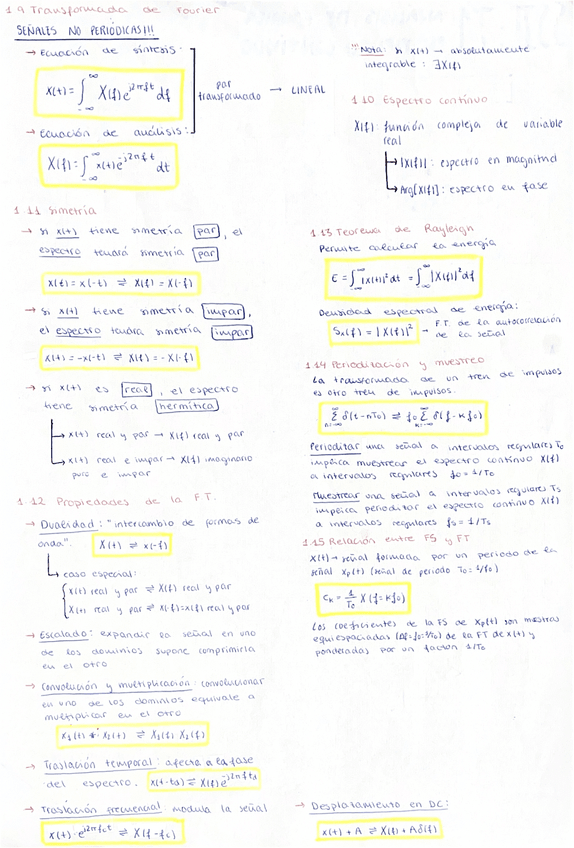 1.9 Transformada de Fourier
SEÑALES NO PERIÓDICAS!!!
→ Ecuación de síntesis:
x(t) = ∫_{-∞}^{∞} X(f) e^{j2πft} df
→ Ecuación de análisis:
X(f) = ∫_{-∞}^{∞} x(t) e^{-j2πft} dt
par
transformado → LINEAL
!!! Nota: si x(t) → absolutamente
integrable : ∃X(f)
1.10 Espectro continuo
X(f): función compleja de variable
real
→ |X(f)| : espectro en magnitud
→ Arg[X(f)] : espectro en fase
1.11 Simetría
→ si x(t) tiene simetría par, el
espectro tendrá simetría par
x(t) = x(-t) ⇌ X(f) = X(-f)
→ si x(t) tiene simetría impar,
el espectro tendrá simetría impar
x(t) = -x(-t) ⇌ X(f) = -X(-f)
→ si x(t) es real, el espectro
tiene simetría hermítica
→ x(t) real y par → X(f) real y par
→ x(t) real e impar → X(f) imaginario
puro e impar
1.12 Propiedades de la FT.
→ Dualidad: "intercambio de formas de
onda". X(t) ⇌ x(-f)
→ caso especial:
x(t) real y par ⇌ X(f) real y par
X(t) real y par ⇌ x(-f)=x(f) real y par
→ Escalado: expandir la señal en uno
de los dominios supone comprimirla
en el otro
→ Convolución y multiplicación: convolucionar
en uno de los dominios equivale a
multiplicar en el otro
x₁(t) * x₂(t) ⇌ X₁(f) X₂(f)
→ Traslación temporal: afecta a la fase
del espectro. x(t-td) ⇌ X(f) e^{-j2πftd}
→ Traslación frecuencial modula la señal
x(t) · e^{j2πfct} ⇌ X(f-fc)
1.13 Teorema de Rayleigh
Permite calcular la energía
E = ∫_{-∞}^{∞} |x(t)|² dt = ∫_{-∞}^{∞} |X(f)|² df
Densidad espectral de energía:
Sx(f) = |X(f)|² → F.T. de la autocorrelación
de la señal
1.14 Periodización y muestreo
La transformada de un tren de impulsos
es otro tren de impulsos.
∑_{n=-∞}^{∞} δ(t-nT₀) ⇌ f₀ ∑_{k=-∞}^{∞} δ(f-kf₀)
Periodizar una señal a intervalos regulares T₀
implica muestrear el espectro continuo X(f)
a intervalos regulares f₀ = 1/T₀
Muestrear una señal a intervalos regulares Ts
implica periodizar el espectro continuo X(f)
a intervalos regulares fs = 1/Ts
1.15 Relación entre FS y FT
x(t) → señal formada por un periodo de la
señal xp(t) (señal de periodo T₀ = 1/f₀)
cₖ = 1/T₀ X(f=kf₀)
Los coeficientes de la FS de xp(t) son muestras
equiespaciadas (Δf=f₀=1/T₀) de la FT de x(t) y
ponderadas por un factor 1/T₀
→ Desplazamiento en DC:
x(t) + A ⇌ X(f) + Aδ(f)